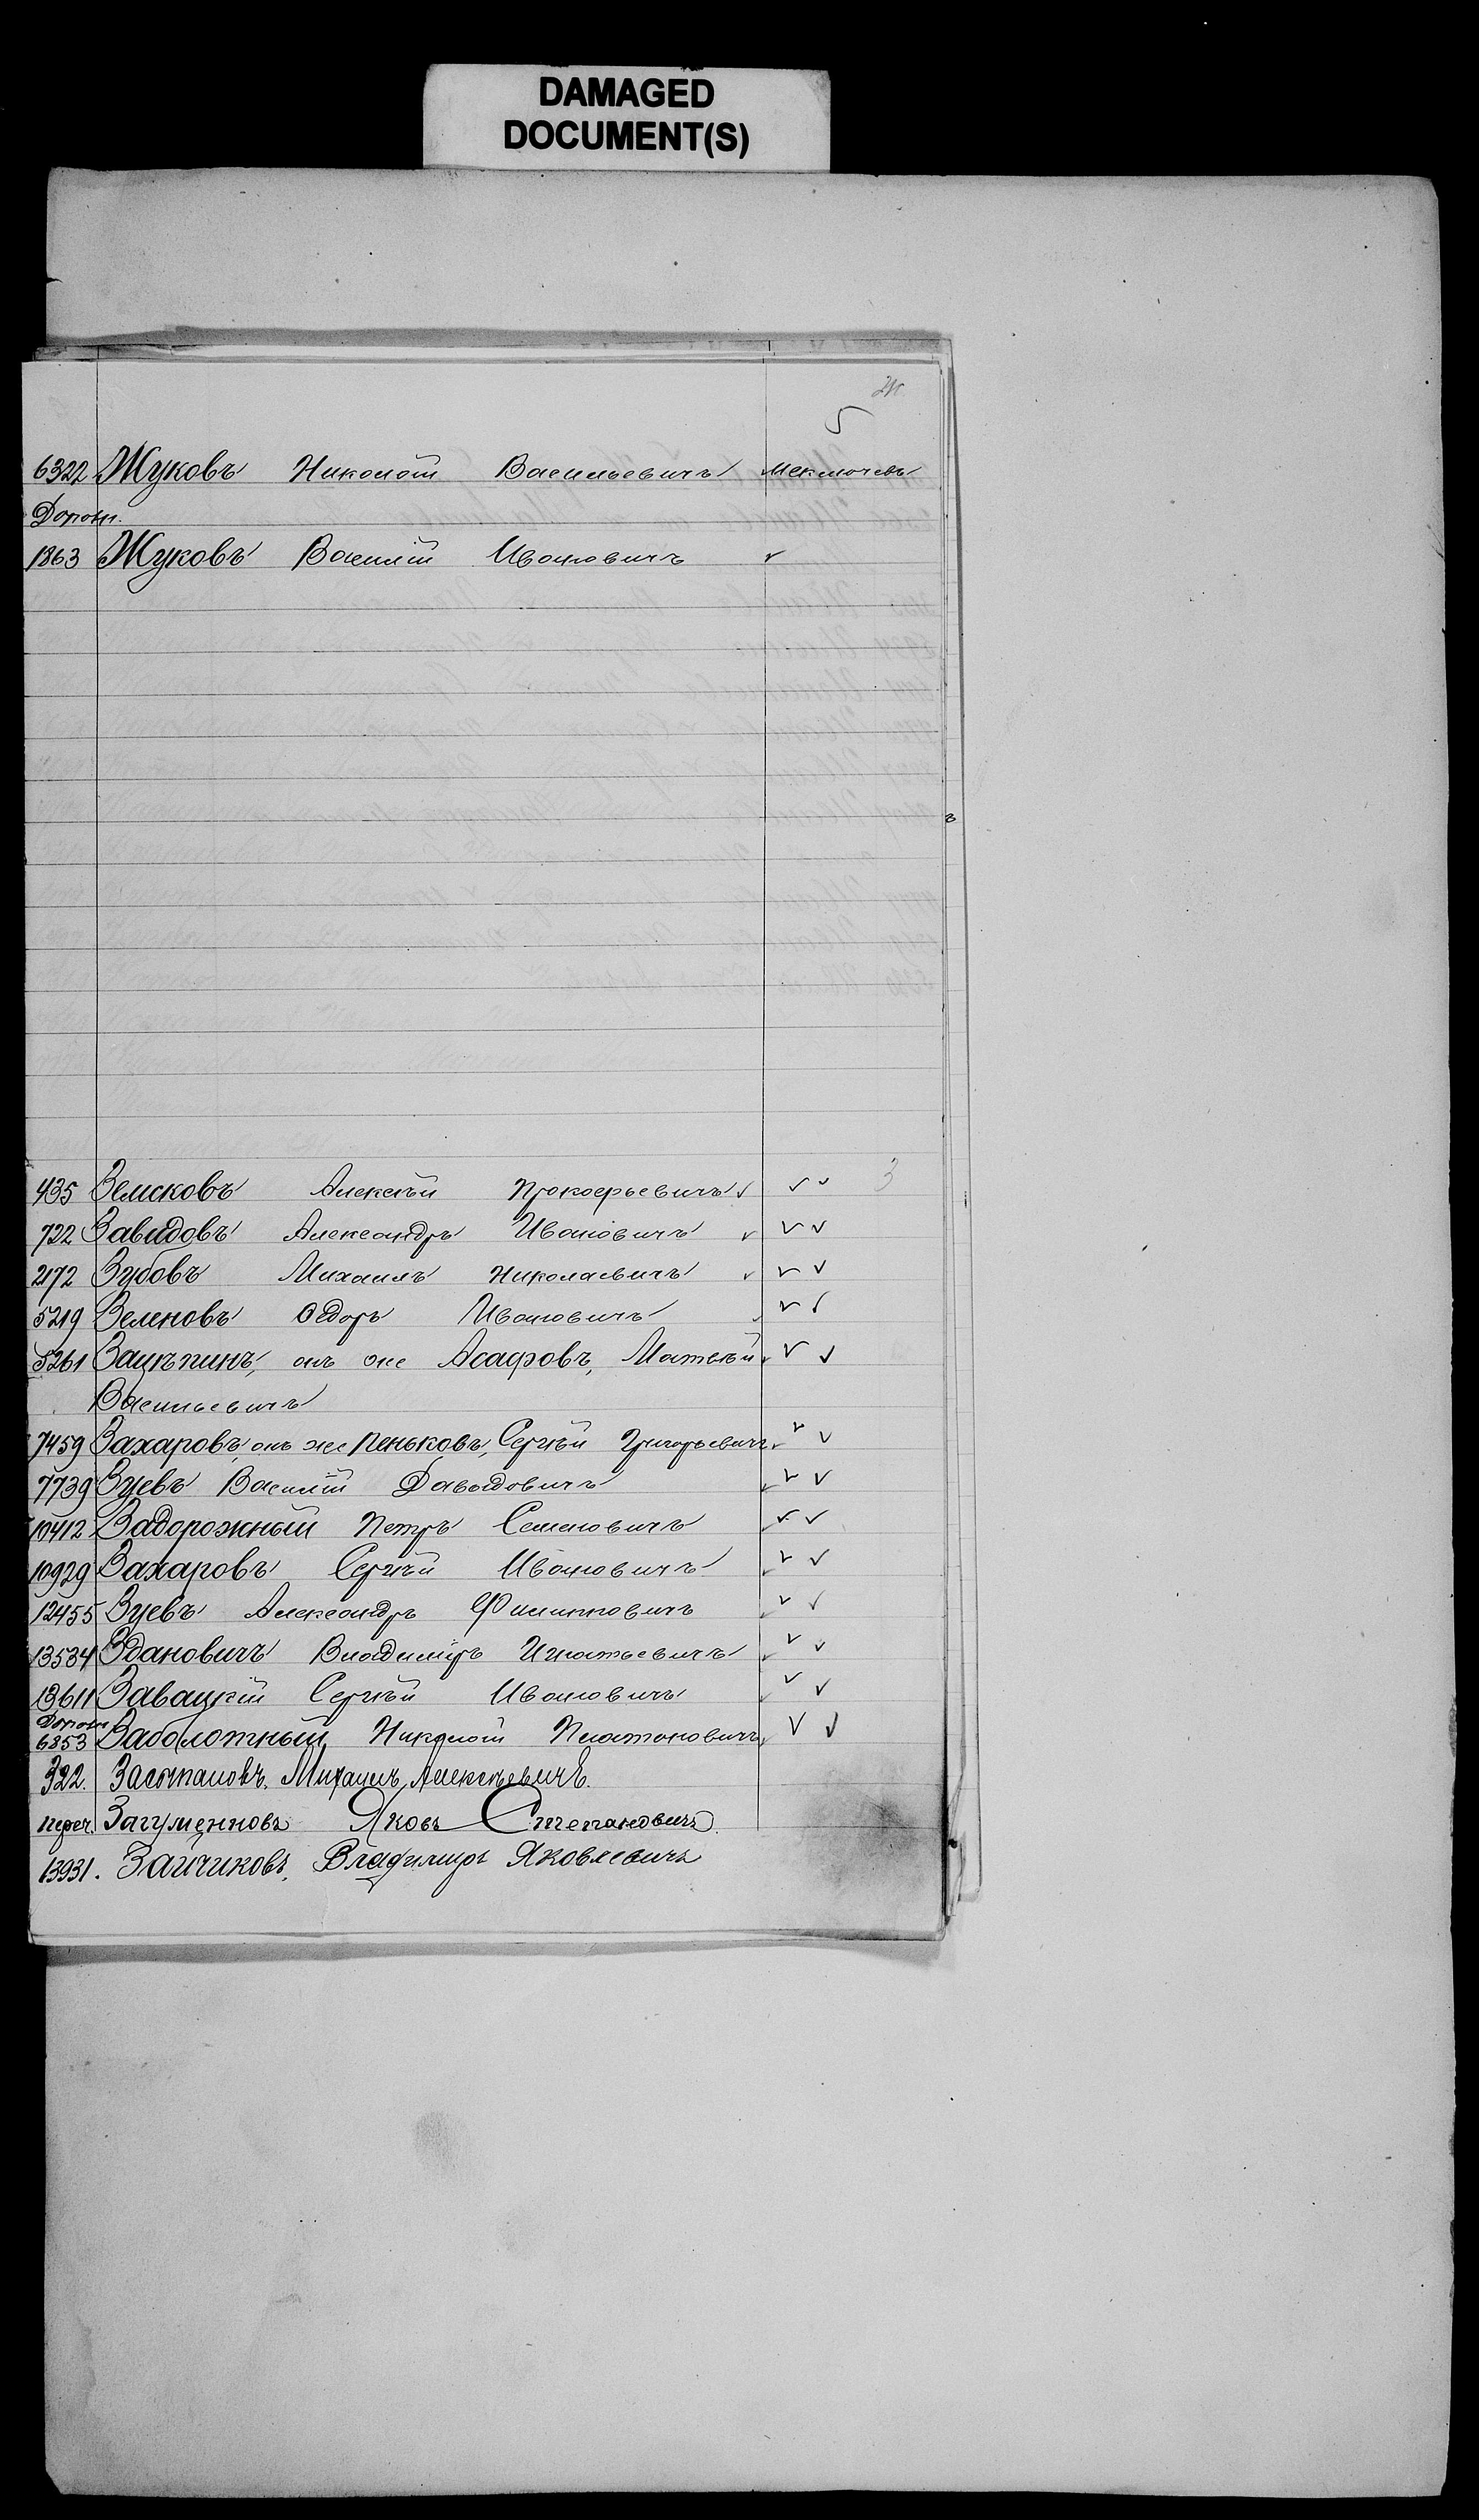 DAMAGED
DOCUMENT(S)
5
6322 Жуковъ Николай Васильевичъ исключенъ
Дорож.
1863 Жуковъ Василій Ивановичъ ✓
3
435 Земсковъ Алексѣй Прокофьевичъ ✓ ✓ ✓
722 Завидовъ Александръ Ивановичъ ✓ ✓ ✓
2172 Зубовъ Михаилъ Николаевичъ ✓ ✓ ✓
5219 Зеленовъ Ѳедоръ Ивановичъ ✓ ✓ ✓
5261 Зацѣпинъ, онъ же Асафовъ, Матвѣй ✓ ✓ ✓
Васильевичъ
7459 Захаровъ, онъ же Пеньковъ, Сергѣй Григорьевичъ ✓ ✓ ✓
7739 Зуевъ Василій Давыдовичъ ✓ ✓ ✓
10412 Задорожный Петръ Семеновичъ ✓ ✓ ✓
10929 Захаровъ Сергѣй Ивановичъ ✓ ✓ ✓
12455 Зуевъ Александръ Филипповичъ ✓ ✓ ✓
13534 Здановичъ Владиміръ Игнатьевичъ ✓ ✓ ✓
13611 Завацкій Сергѣй Ивановичъ ✓ ✓ ✓
Дорож
6853 Заболотный Николай Платоновичъ ✓ ✓ ✓
322. Засыпановъ, Михаилъ Алексѣевичъ.
переч. Загуменновъ Яковъ Степановичъ.
13931. Зайчиковъ, Владимиръ Яковлевичъ